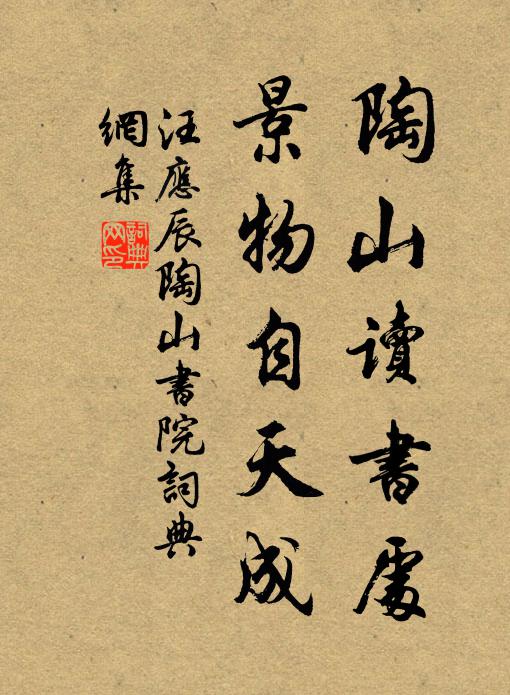 陶山讀書處
景物自天成
汪應辰陶山書院詞典
網集
詞典
网印